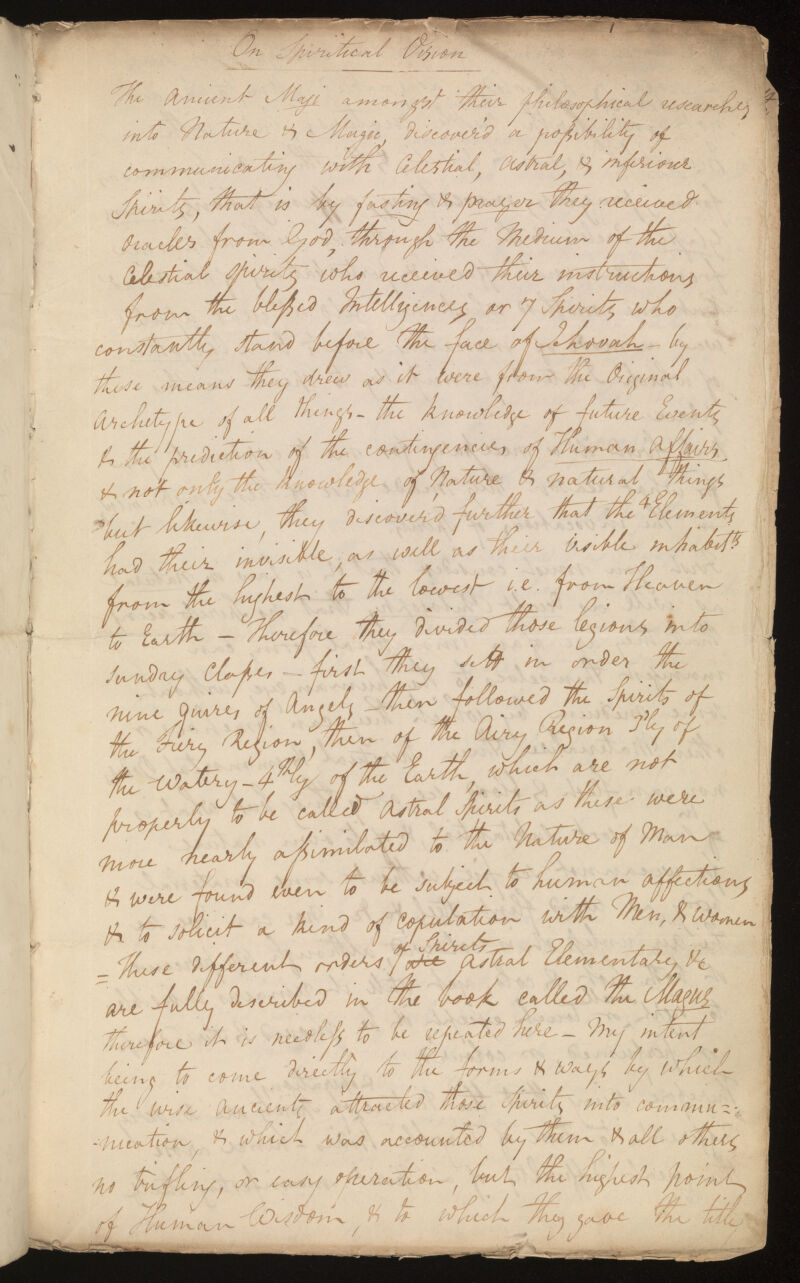 On Spiritical Vision
The Ancient Magi amongst their philosophical researches
into Nature & Magic, discover'd a possibility of
communicating with Celestial, Astral, & inferiour
Spirits, that is by fasting & prayer they received
Oracles from God, through the Medium of the
Celestial Spirits who received their instructions
from the blessed Intelligences or 7 Spirits who
constantly stand before the face of Jehovah – by
these means they drew as it were from the Original
Archetype of all things – the knowledge of future Events
& the prediction of the contingencies of Human Affairs.
& not only the knowledge of Nature & natural things
but likewise, they discover'd further that the 4 Elements
had their invisible, as well as their visible inhabitts
from the highest to the lowest i.e. from Heaven
to Earth – Therefore they divided those legions into
sundry Classes – first they sett in order the
nine quires of Angels – then followed the Spirits of
the Fiery Region, then of the Airy Region 3ly of
the Watery – 4thly of the Earth, which are not
properly to be called Astral Spirits as these were
more nearly assimilated to the Nature of Man
& were found even to be subject to human affections
& to solicit a kind of copulation with Men, & Women
= These different orders of Spirits Astral Elementary &c
are fully discribed in the book called the Magus
therefore it is needless to be repeated here – My intent
being to come directly to the forms & ways by which
the wise Ancients attracted those Spirits into commu=
=nication, & which was accounted by them & all others
no trifling, or easy operation, but the highest point
of Human Wisdom, & to which they gave the title